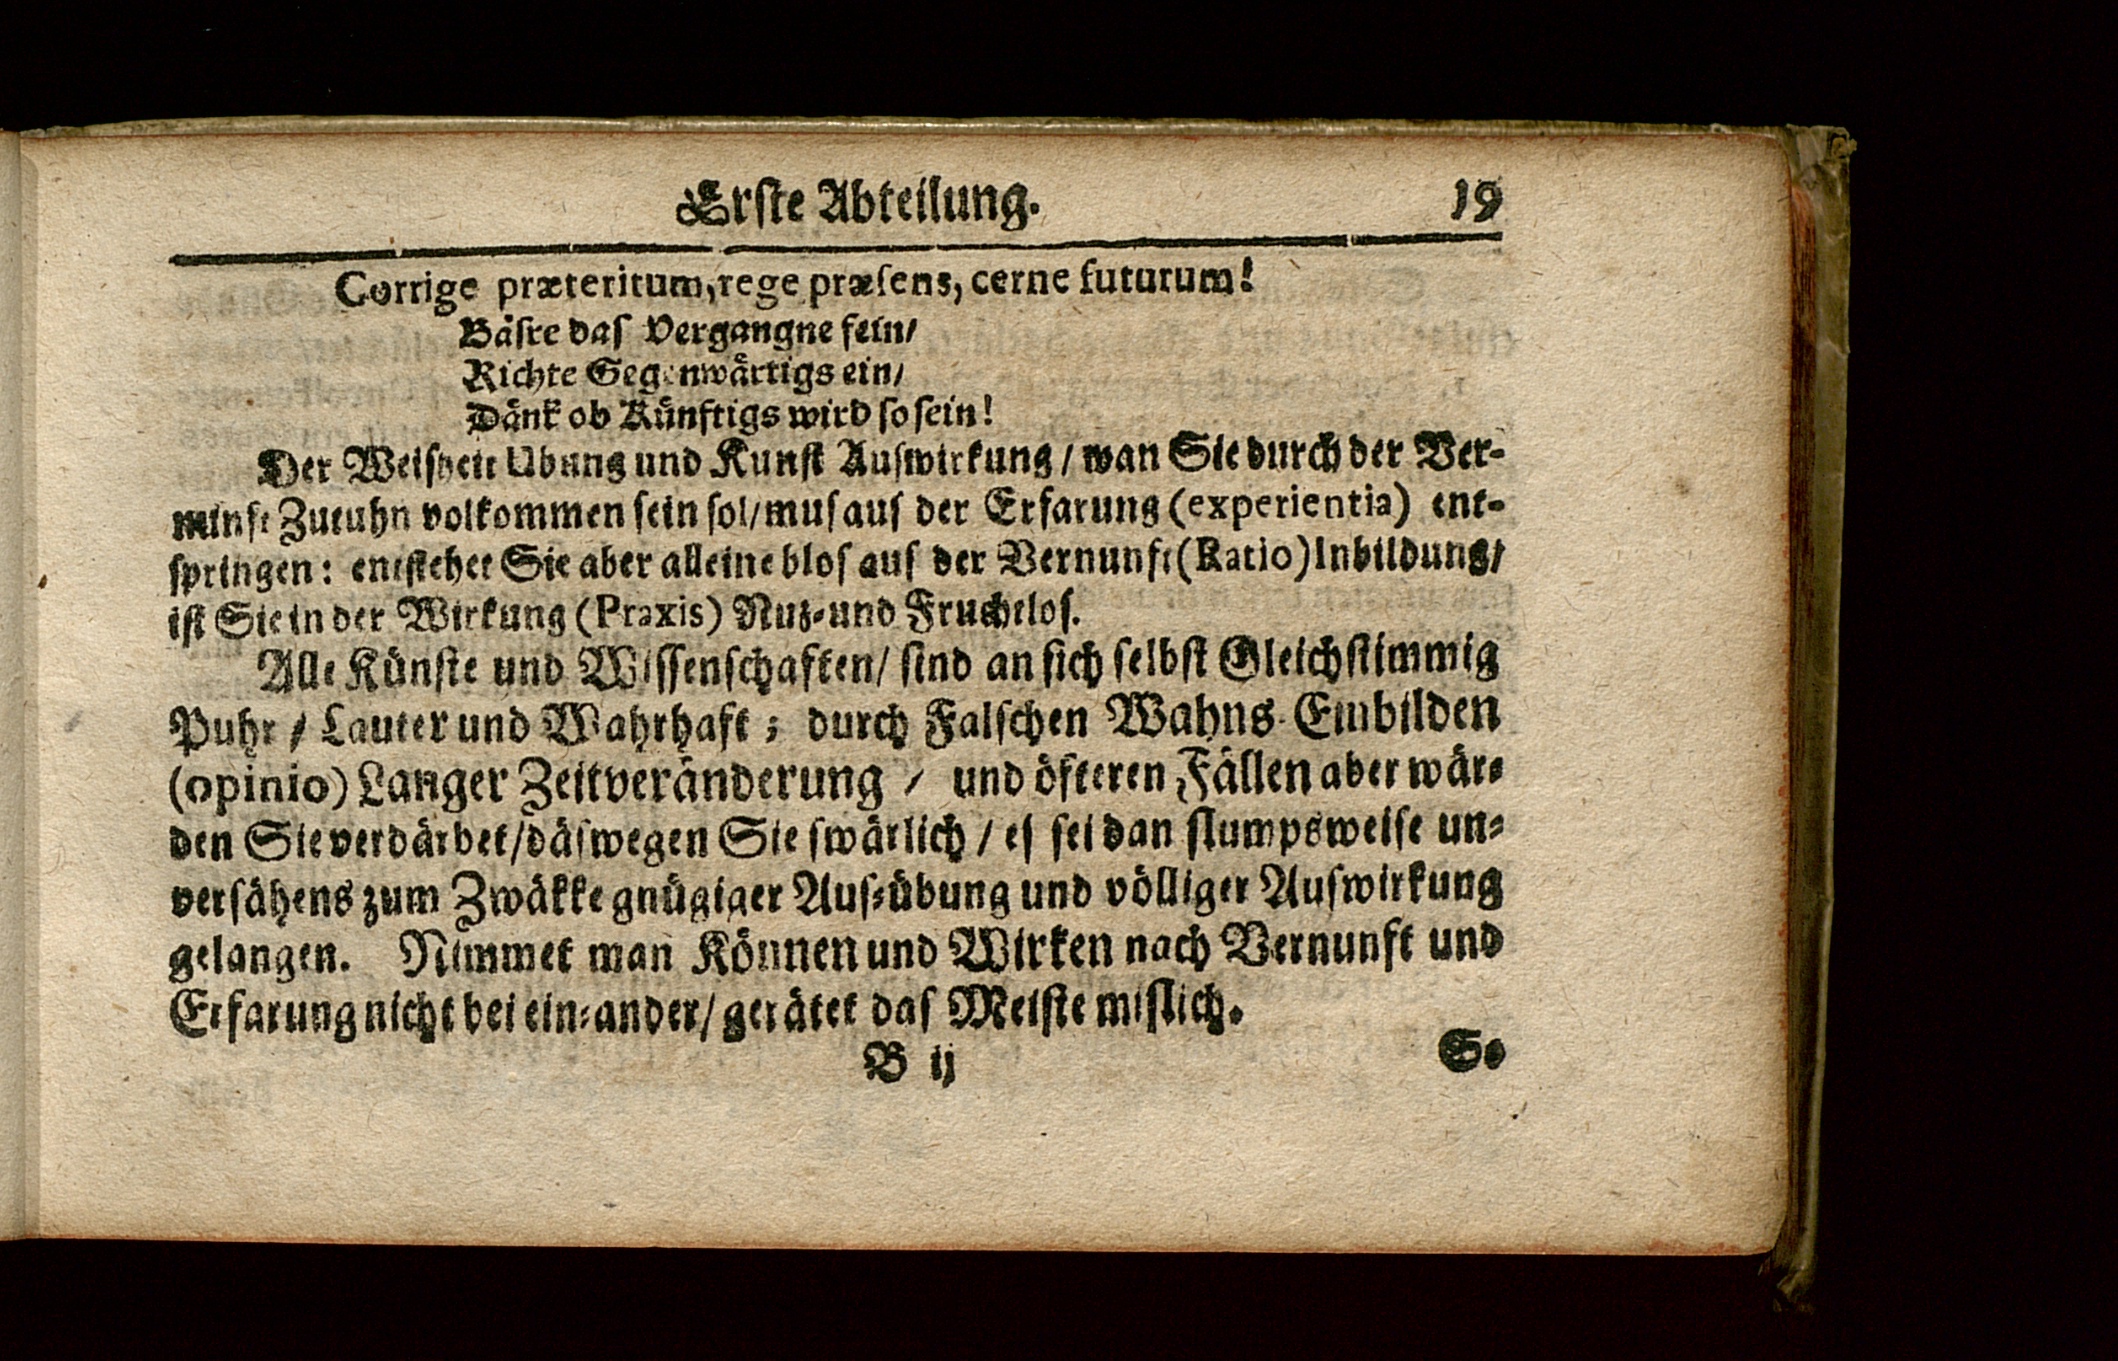 Erste Abteilung. 19
Corrige præteritum, rege præsens, cerne futurum!
Bäſre daſ Vergangne fein/
Richte Gegenwärtigs ein/
Dänk ob Künftigs wird ſo ſein!
Der Weiſheit Ubung und Kunſt Auſwirkung / wan Sie durch der Ver-
nunft Zutuhn volkommen ſein ſol/ muſ auſ der Erfarung (experientia) ent-
ſpringen: entſtehet Sie aber alleine bloſ auſ der Vernunft (Ratio) Inbildung/
iſt Sie in der Wirkung (Praxis) Nuz- und Fruchtloſ.
Alle Künſte und Wiſſenſchaften/ ſind an ſich ſelbſt Gleichſtimmig
Puhr / Lauter und Wahrhaft; durch Falſchen Wahns Einbilden
(opinio) Langer Zeitveränderung / und öfteren Fällen aber wär-
den Sie verdärbet/ däſwegen Sie ſwärlich / eſ ſei dan ſlumpsweiſe un-
verſähens zum Zwäkke gnügiger Auſ-übung und völliger Auſwirkung
gelangen. Nimmet man Können und Wirken nach Vernunft und
Erfarung nicht bei ein-ander/ gerätet daſ Meiſte miſlich.
B ij So